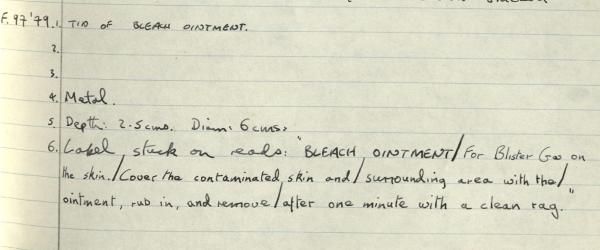 F.97'79.1. TIN OF BLEACH OINTMENT.
2.
3.
4. Metal.
5. Depth: 2.5cms. Diam: 6cms.
6. Label stuck on reads: "BLEACH OINTMENT/For Blister Gas on
the skin./Cover the contaminated skin and/surrounding area with the/
ointment, rub in, and remove/after one minute with a clean rag."